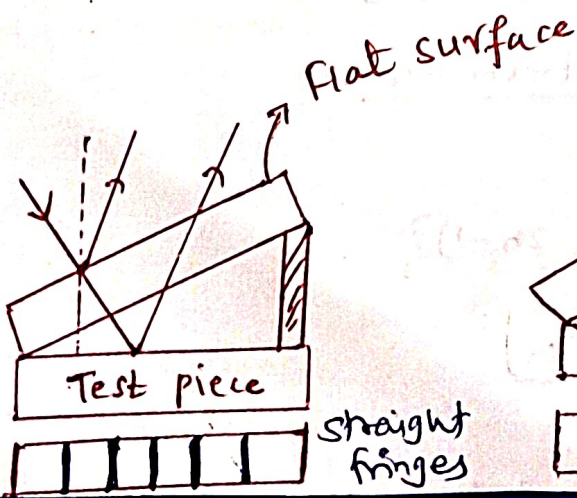 Flat surface
Test piece
straight
fringes